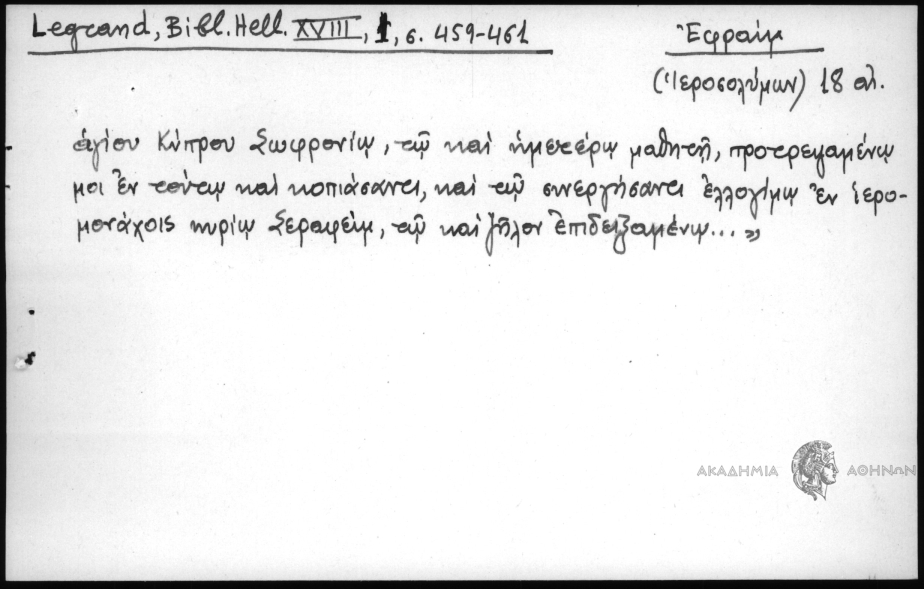 Legrand, Bibl. Hell. XVIII, 1, σ. 459-461
Ἐφραίμ
(Ἱεροσολύμων) 18 αἰ.
ἁγίου Κύπρου Σωφρονίῳ, τῷ καὶ ἡμετέρῳ μαθητῇ, προτρεψαμένῳ
μοι ἐν τούτῳ καὶ κοπιάσαντι, καὶ τῷ συνεργήσαντι ἐλλογίμῳ ἐν ἱερο-
μονάχοις κυρίῳ Σεραφείμ, τῷ καὶ ζῆλον ἐπιδειξαμένῳ... »
ΑΚΑΔΗΜΙΑ ΑΘΗΝΩΝ